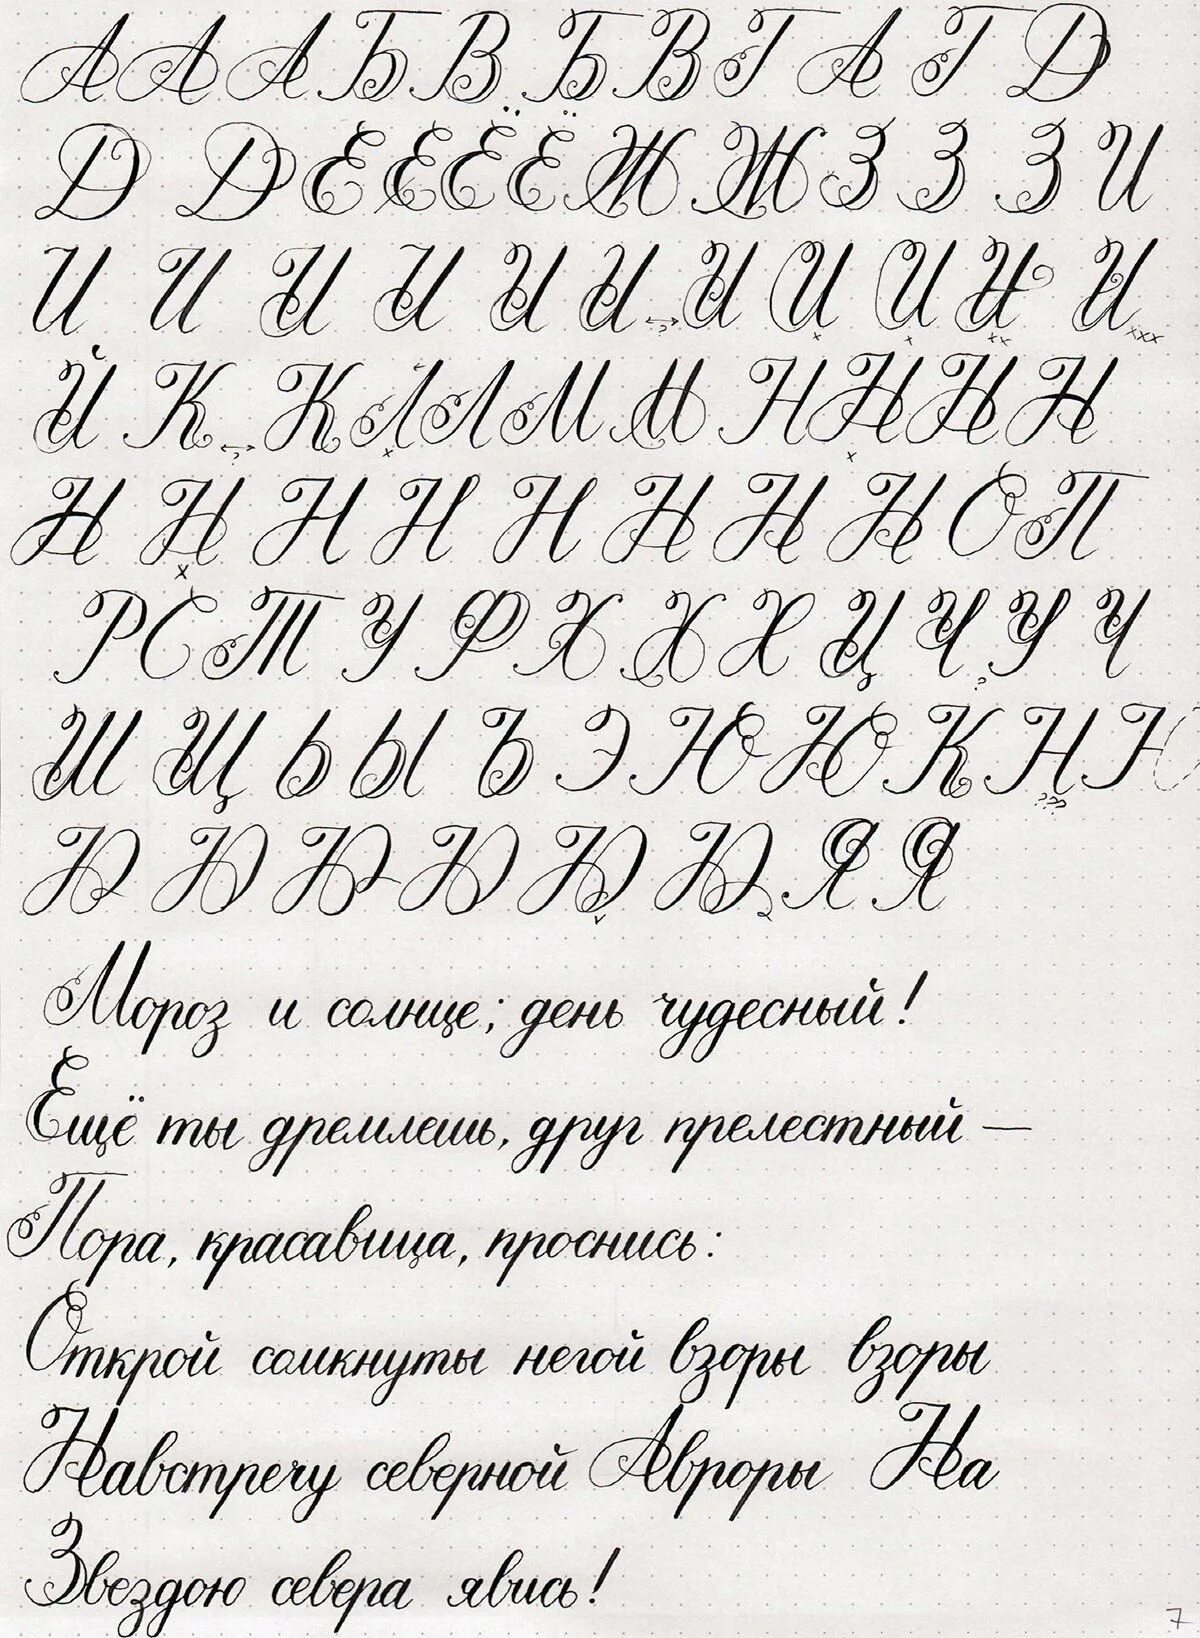 А А А Б В Б В Г А Г Д
Д Д Е Е Ё Ё Ж Ж З З З И
И И И И И И ↔? И И x И x И xx И xxx
Й К ↔? К Л x Л М М Н Н x Н Н
Н Н x Н Н Н Н Н Н О П
Р С Т У Ф Х Х Х Ц Ч ? У Ч
Ш Щ Ь Ы Ъ Э Ю Ю К Н ??? Ю
Ю Ю Ю Ю Ю Ю Я Я
Мороз и солнце; день чудесный!
Ещё ты дремлешь, друг прелестный —
Пора, красавица, проснись:
Открой сомкнуты негой взоры взоры
Навстречу северной Авроры На
Звездою севера явись!
7